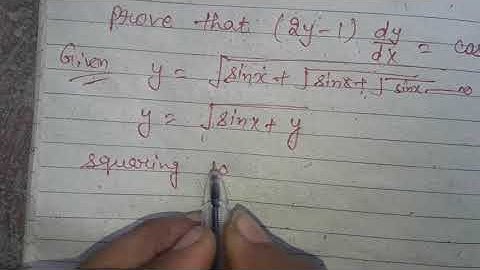 Prove that (2y-1) dy/dx = cos
Given y = √sinx + √sinx + √sinx.....∞
y = √sinx + y
squaring